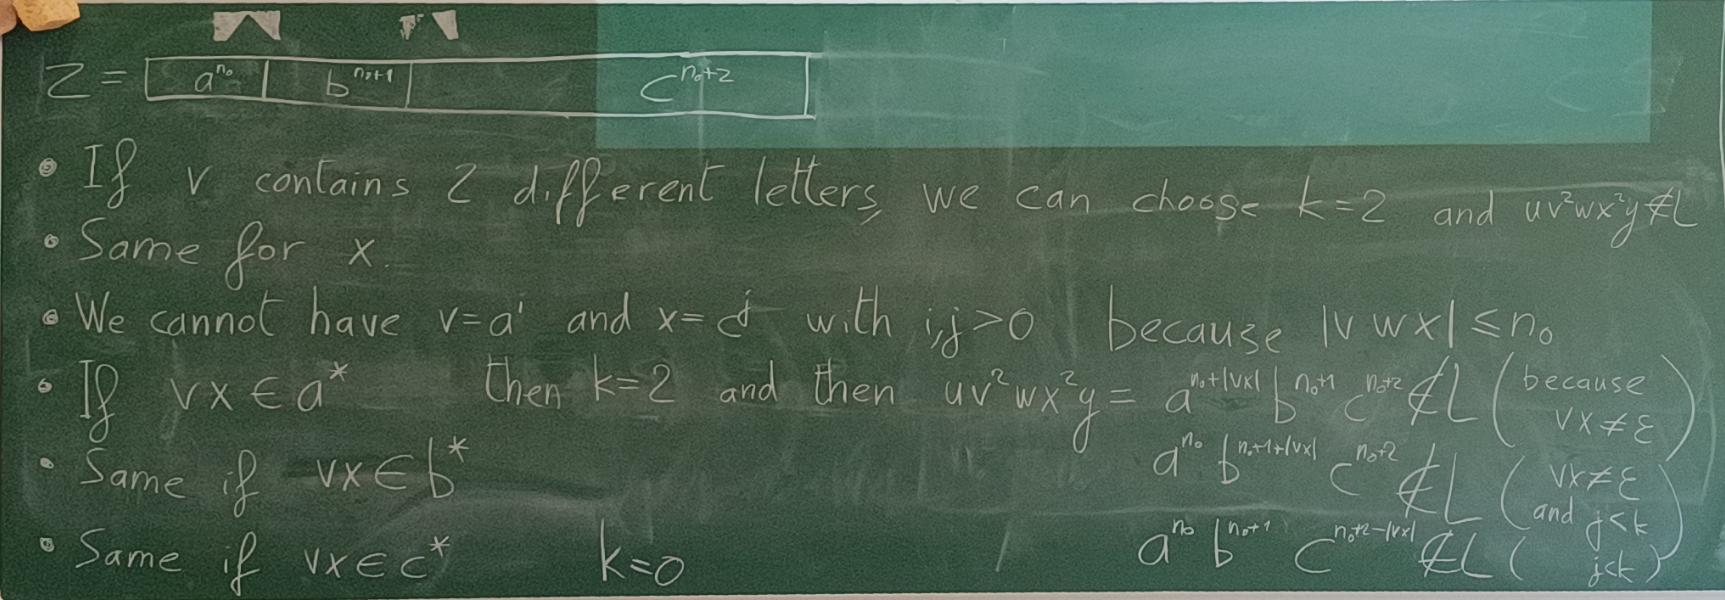 Z = a^{n₀} b^{n₀+1} c^{n₀+2}
• If v contains 2 different letters, we can choose k=2 and uv²wx²y ∉ L
• Same for x.
• We cannot have v=a^i and x=c^j with i,j>0 because |v w x| ≤ n₀
• If vx ∈ a* then k=2 and then uv²wx²y = a^{n₀+|vx|} b^{n₀+1} c^{n₀+2} ∉ L (because vx≠ε)
• Same if vx ∈ b* a^{n₀} b^{n₀+1+|vx|} c^{n₀+2} ∉ L (vx≠ε and j<k)
• Same if vx ∈ c* k=0 a^{n₀} b^{n₀+1} c^{n₀+2-|vx|} ∉ L ( j<k )